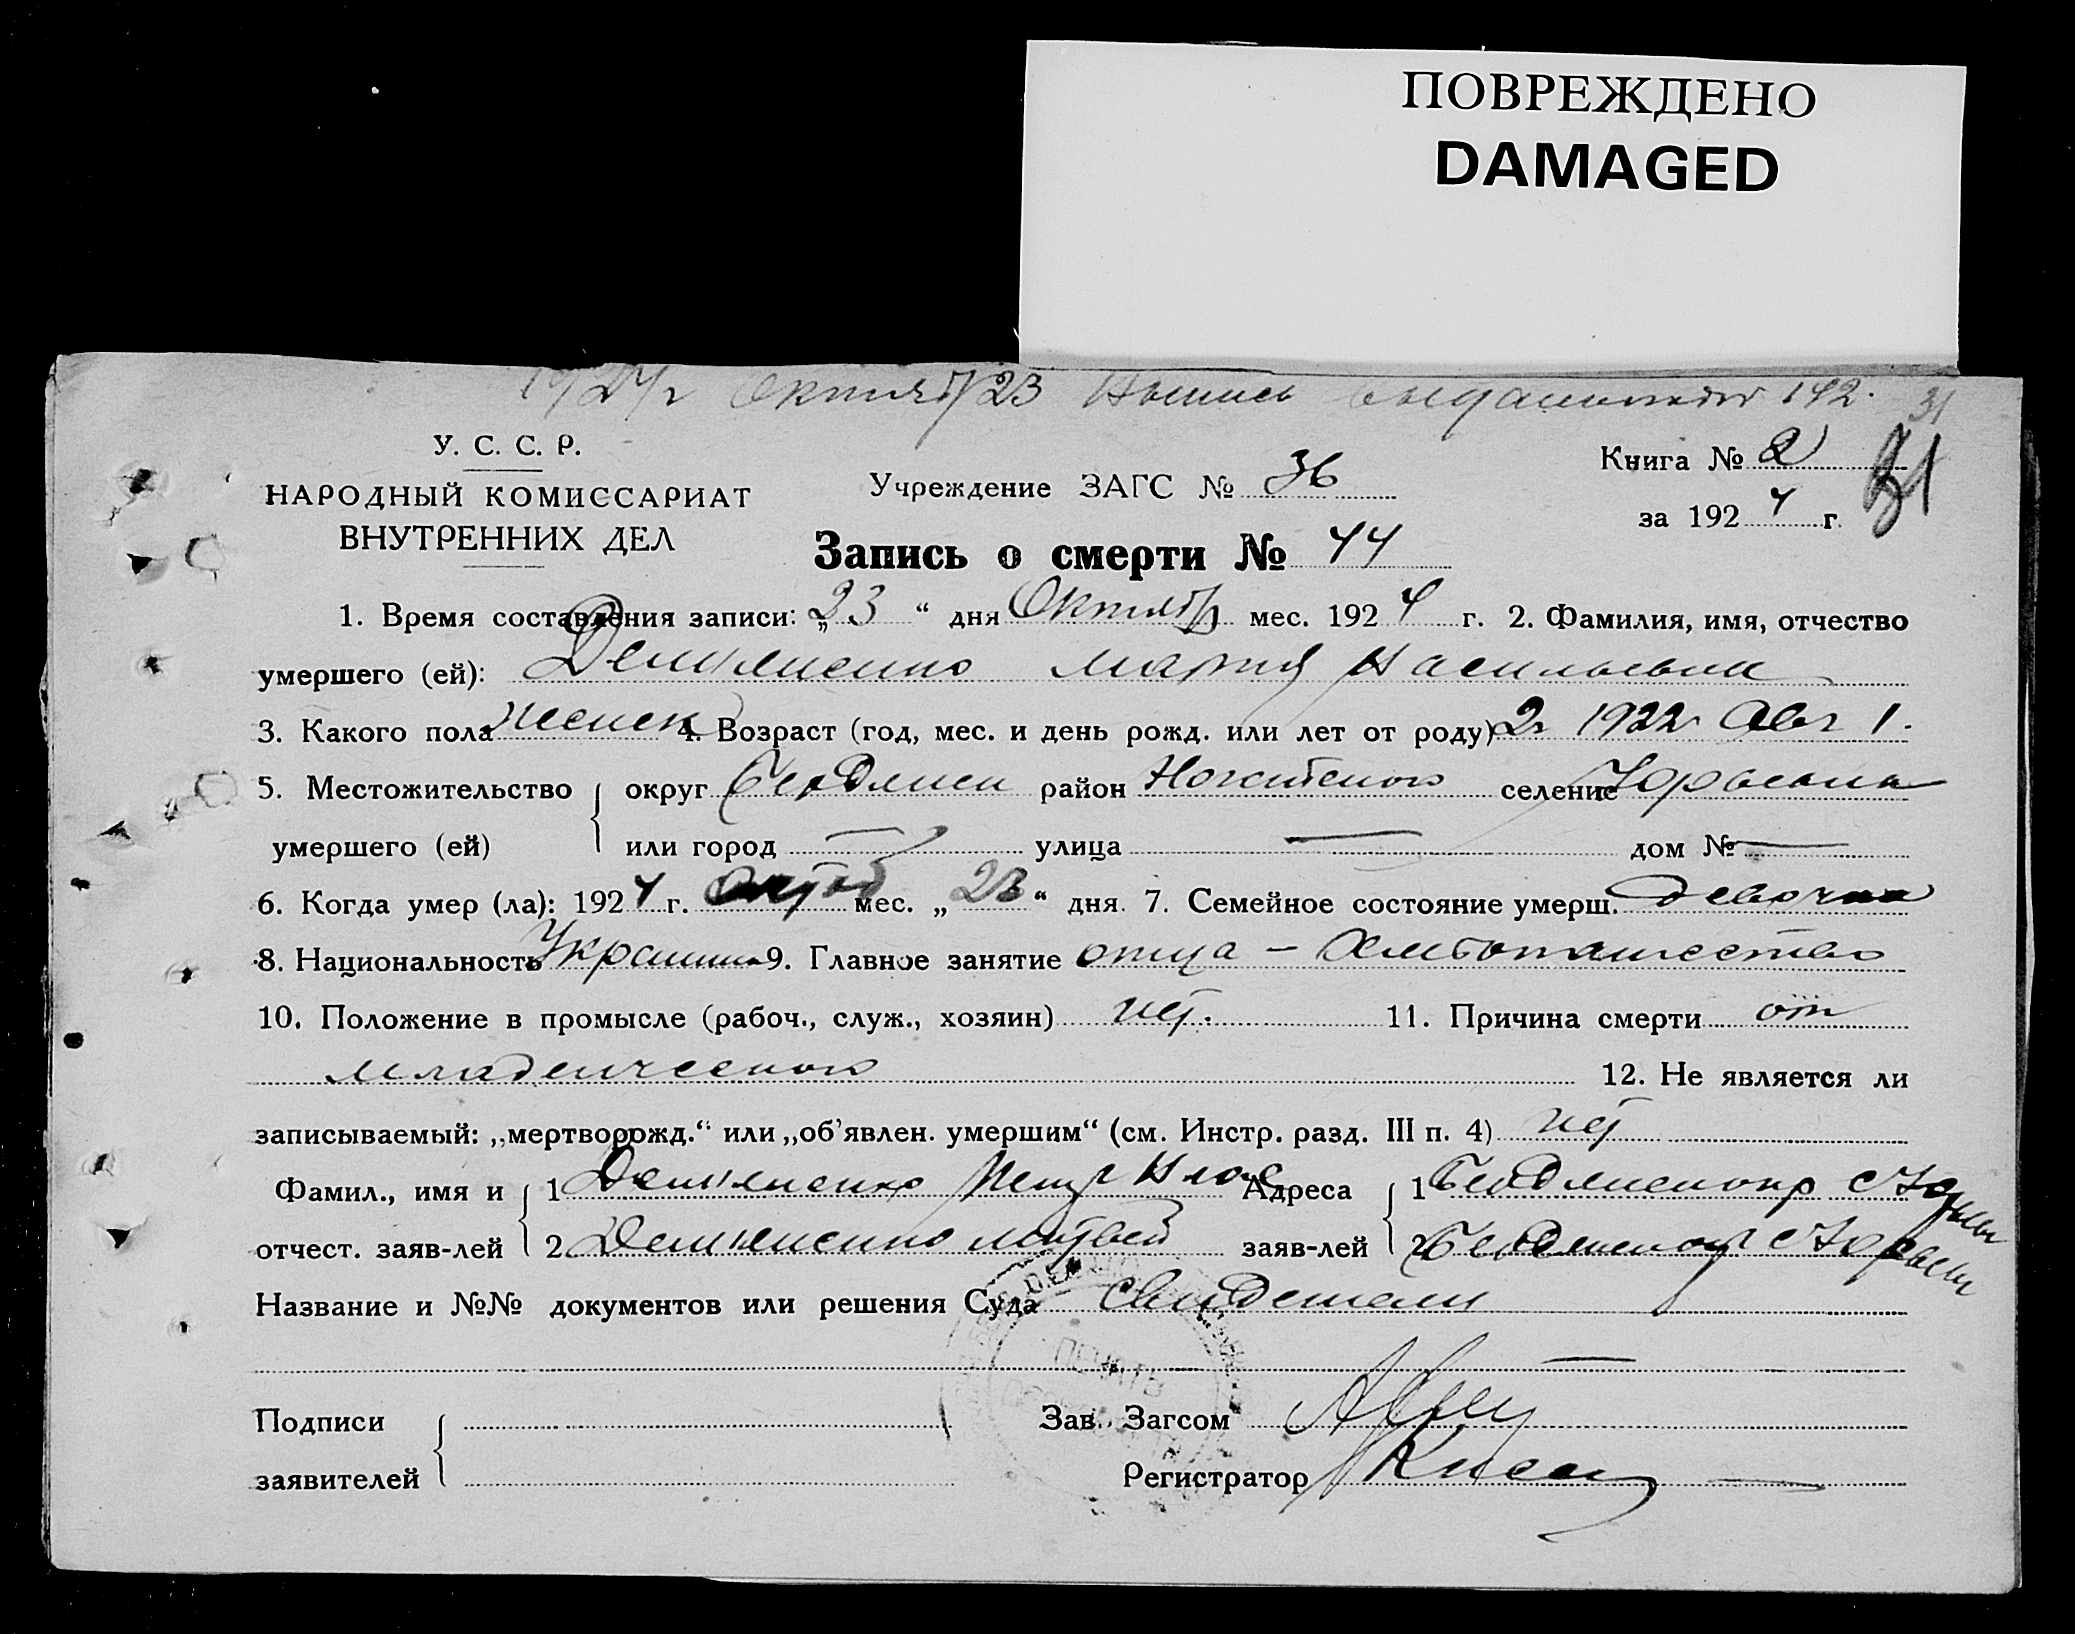 ПОВРЕЖДЕНО
DAMAGED
1924 г Октяб 23 142. 31
У. С. С. Р.
НАРОДНЫЙ КОМИССАРИАТ
ВНУТРЕННИХ ДЕЛ
Учреждение ЗАГС № 36
Книга № 2
за 192 4 г. 31
Запись о смерти № 44
1. Время составления записи: „ 23 “ дня Октяб мес. 192 4 г. 2. Фамилия, имя, отчество
умершего (ей): Демьяненко Мария Васильевна
3. Какого пола женск 4. Возраст (год, мес. и день рожд. или лет от роду) 2 г 1922 г Авг 1.
5. Местожительство округ Бердянск район селение Юрьевка
умершего (ей) или город — улица — дом № —
6. Когда умер (ла): 192 4 г. Октяб мес. „ 23 “ дня. 7. Семейное состояние умерш. девочка
8. Национальность Украинка 9. Главное занятие отца — Хлебопашество
10. Положение в промысле (рабоч., служ., хозяин) нет. 11. Причина смерти от
младенческого 12. Не является ли
записываемый: „мертворожд.“ или „об'явлен. умершим“ (см. Инстр. разд. III п. 4) нет
Фамил., имя и 1 Демьяненко Петр Адреса 1 Бердянского с Юрьевки
отчест. заяв-лей 2 Демьяненко Матвей заяв-лей 2 Бердянского с Юрьевки
Название и №№ документов или решения Суда Свидетели
—
Подписи Зав. Загсом
заявителей Регистратор
ПЕЧАТЬ